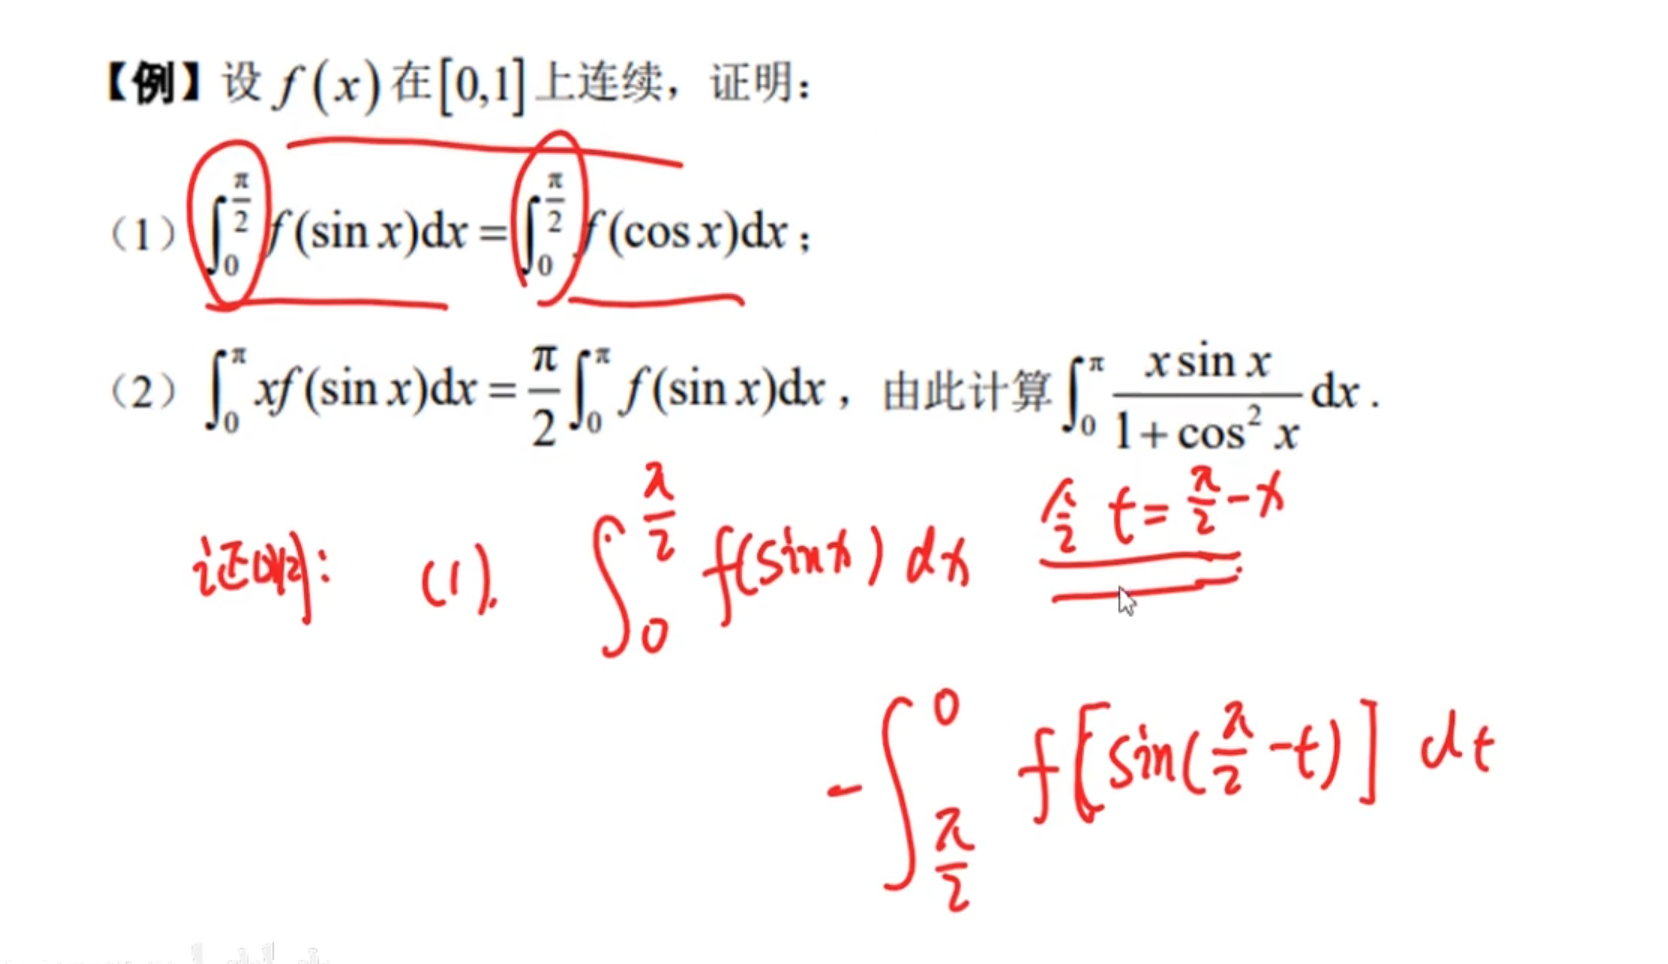 【例】设 f(x) 在[0,1]上连续，证明：
（1）∫₀^{π/2} f(sin x)dx = ∫₀^{π/2} f(cos x)dx；
（2）∫₀^π xf(sin x)dx = π/2 ∫₀^π f(sin x)dx，由此计算 ∫₀^π (x sin x)/(1+cos² x) dx.
证明： (1). ∫₀^{π/2} f(sinx) dx 令 t = π/2 - x
-∫_{π/2}^0 f[sin(π/2 - t)] dt